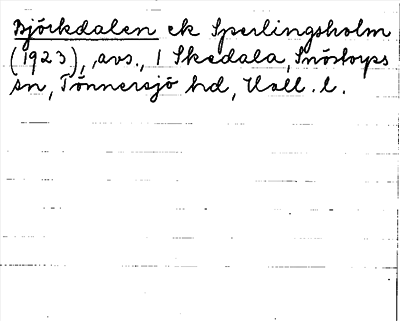 Björkdalen ek Sperlingsholm
(1923), avs., 1 Skedala, Snöstorps
sn, Tönnersjö hd, Hall. l.